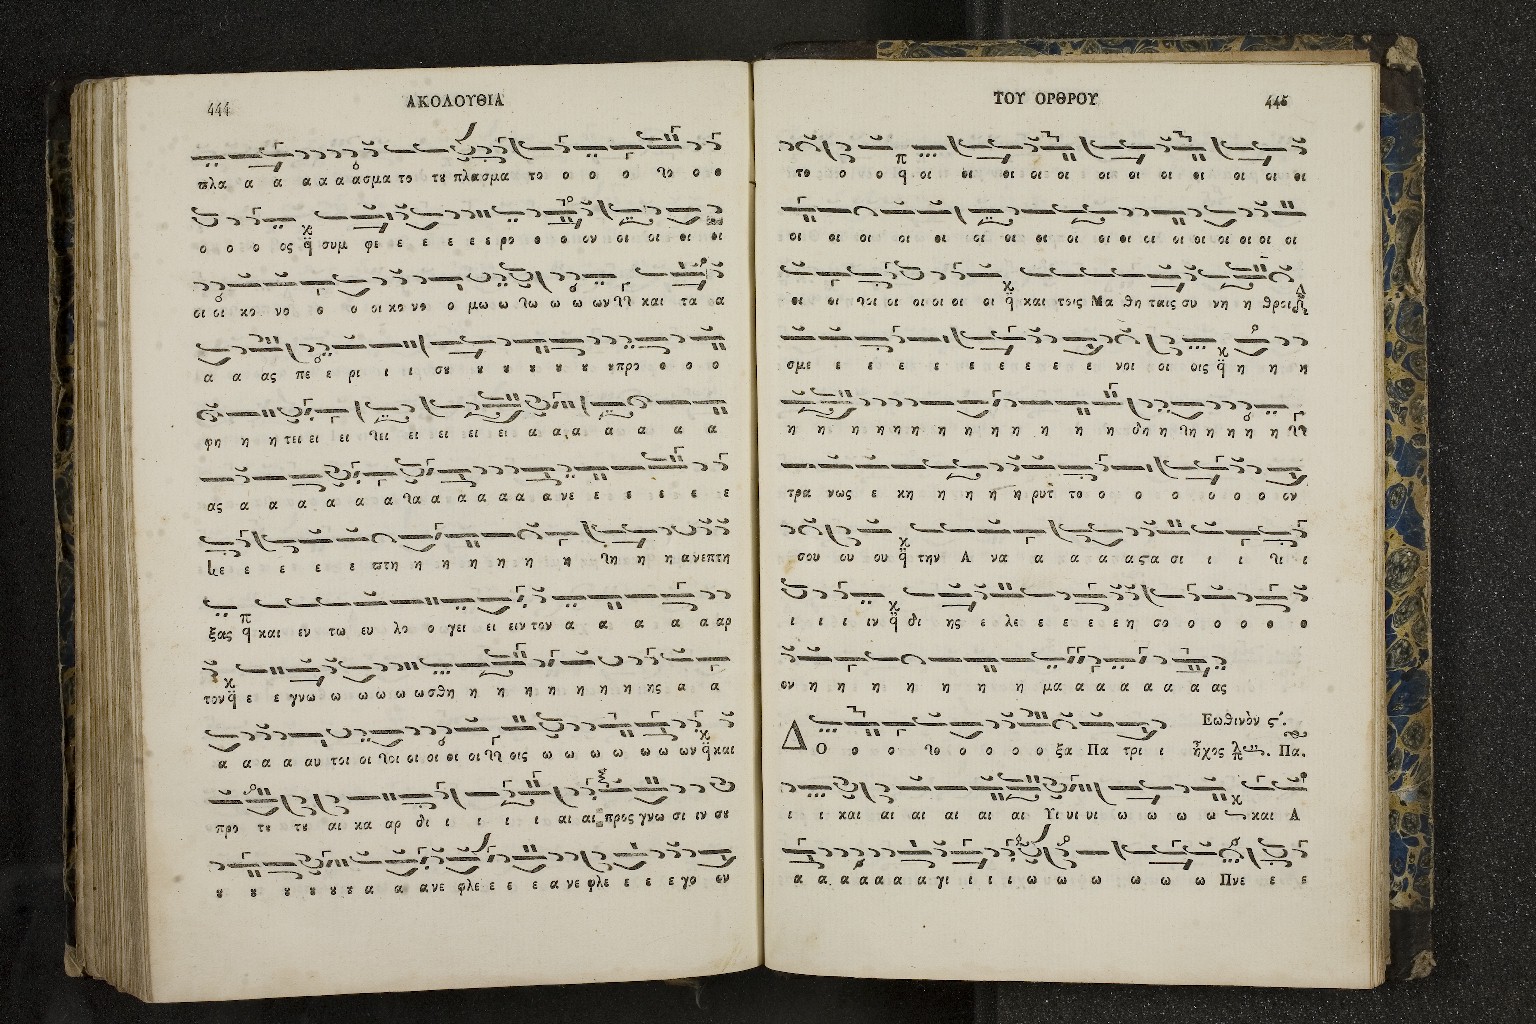 444
ΑΚΟΛΟΥΘΙΑ
πλα α α α α α ασμα το τȣ πλασμα το ο ο ο το ο ο
ο ο ο ος συμ φε ε ε ε ε ε ρο ο ο ον οι οι οι οι
οι οι κο νο ο ο οι κο νο ο μω ω τω ω ω ων και τα α
α α ας πε ε ρι ι ι σȣ ȣ ȣ ȣ ȣ ȣ ȣπρο ο ο ο
φη η η τει ει ει τει ει ει ει ει α α α α α α α
ας α α α α α α α α α α α α νε ε ε ε ε ε
ε ε ε ε ε πτη η η η η η η τη η η ανεπτη
ξας και εν τω ευ λο ο γει ει ειν τον α α α α α αρ
τον ε ε γνω ω ω ω ω ωσθη η η η η η η η ης α α
α α α α αυ τοι οι τοι οι οι οι οι οις ω ω ω ω ω ω ων και
προ τȣ τȣ αι κα αρ δι ι ι ι ι αι αι προς γνω σι ιν σȣ
ȣ ȣ ȣ ȣ ȣ ȣ α α ανε φλε ε ε ε α νε φλε ε ε ε γο ον
ΤΟΥ ΟΡΘΡΟΥ
445
το ο ο οι οι οι οι οι οι οι οι οι οι οι οι
οι οι οι οι οι οι οι οι οι οι οι οι οι οι οι οι οι
οι οι τοι οι οι οι οι οι και τοις Μα θη ταις συ νη η θροι
σμε ε ε ε ε ε ε ε ε ε νοι οι οις η η η
η η η η η η η η η η η η δη η τη η η η η
τρα νως ε κη η η η η ρυτ το ο ο ο ο ο ο ον
σου ου ου την Α να α α α α αςα σι ι ι τι ι
ι ι ι ιν δι ης ε λε ε ε ε ε η σο ο ο ο ο ο
ον η η η η η η η μα α α α α α α ας
Εωθινὸν ς΄.
Δ Ο ο ο το ο ο ο ο ξα Πα τρι ι ἦχος Πα.
ι ι και αι αι αι αι αι Υι υι υι ω ω ω ω και Α
α α α α α α α γι ι ι ι ω ω ω ω ω ω Πνε ε ε